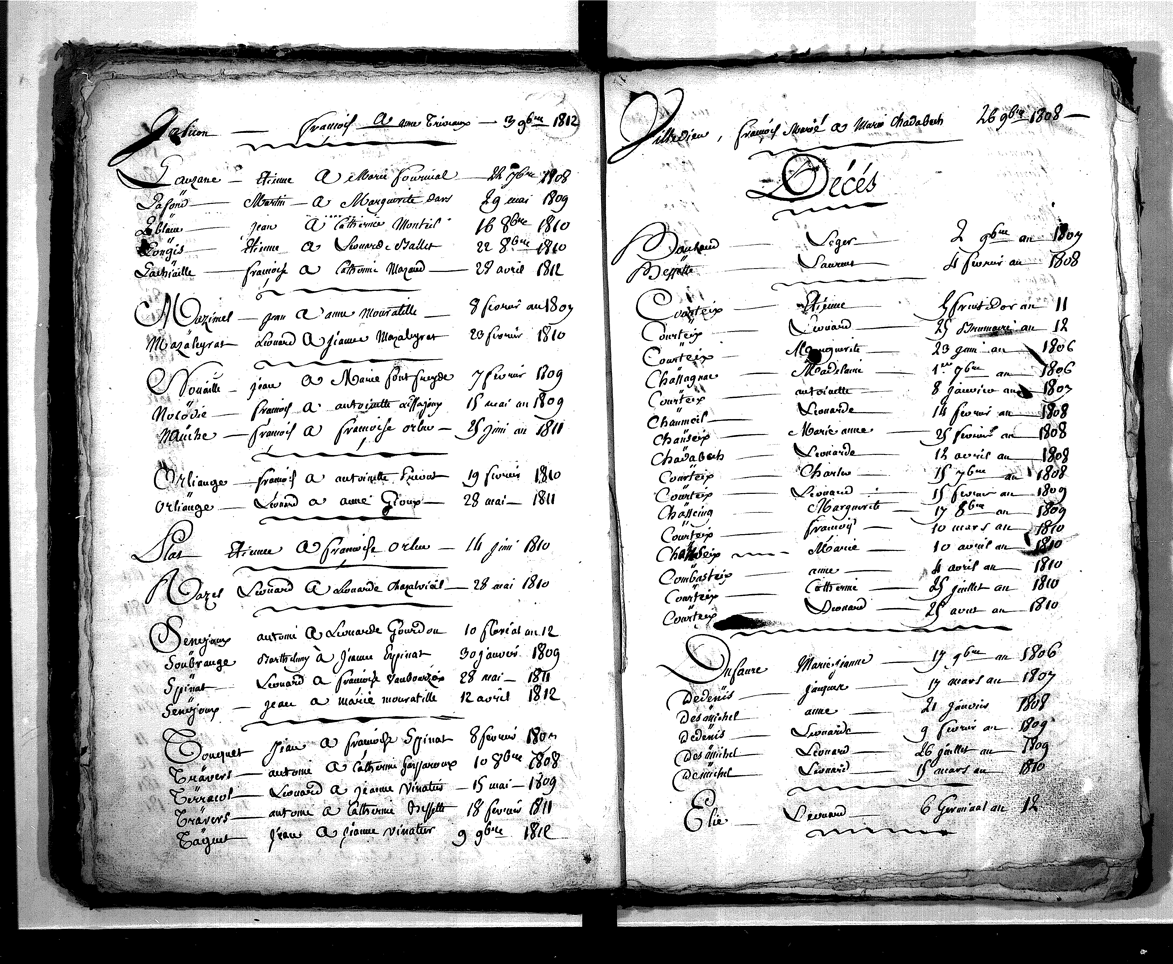 françois à anne — 3 9bre 1812
Lauzane — Etienne à Marie fournial — 22 7bre 1808
Lafond — Martin — à Marguerite — 29 mai 1809
Leblanc — jean à Catherine Monteil — 16 8bre 1810
Longis — Etienne à Léonarde Ballet — 22 8bre 1810
françois à Catherine Mazaud — 28 avril 1812
Mazimel — jean à anne Mouratille — 8 fevrier an 1807
Mazaleyrat Léonard à jeanne Mazaleyrat 20 fevrier 1810
Nouaille — jean à Marie fontfreyde 7 fevrier 1809
françois à antoinette 15 mai an 1809
Nauche — françois à françoise orlue — 25 juin an 1811
Orliange — françois à antoinette 19 fevrier 1810
Orliange — Léonard à anne Gioux — 28 mai — 1811
Plas Etienne à françoise orlue — 14 juin 1810
Léonard à Léonarde 28 mai 1810
Senejoux antoine à Léonarde Gourdon 10 floréal an 12
Soubrange Barthelmy à Jeanne Espinat — 30 janvier 1809
Spinat — Léonard à françoise 28 mai — 1811
Senejoux — jean à marie mouratille 12 avril 1812
Touquet jean à françoise Spinat 8 fevrier 1807
Travers — antoine à Catherine 10 8bre 1808
Terracol — Léonard à jeanne Vinatier — 15 mai — 1809
Travers — antoine à Catherine Bessette 18 fevrier 1811
jean à jeanne vinatier 9 9bre 1812
Villedieu, françois Marié à Marie Chadabech 26 9bre 1808 —
Décés
Leger — 2 9bre an 1807
Bessette — Laurent — 4 fevrier an 1808
Courteix — Etienne — 5 fructidor an 11
Courteix — Léonard — 25 Brumaire an 12
Courteix — Marguerite — 23 juin an 1806
Chassagne — Madelaine — 1er 7bre an 1806
Courteix — antoinette — 8 janvier an 1807
Chaumeil — Léonarde — 14 fevrier an 1808
Chauseix — Marie anne — 25 fevrier an 1808
Chadabech — Léonarde — 12 avril an 1808
Courteix — Charles — 15 7bre an 1808
Courteix — Léonard — 15 fevrier an 1809
Chasseing — Marguerite — 17 8bre an 1809
Courteix — françois — 10 mars an 1810
Marie — 10 avril an 1810
Combasteix — anne — 4 avril an 1810
Courteix — Catherine — 25 juillet an 1810
Courteix — Léonard — 25 aout an 1810
Dufaure Marie jeanne 17 9bre an 1806
Dedenis — jacques — 17 mars an 1807
Desmichel — anne — 21 janvier 1808
Dedenis — Léonarde — 9 fevrier an 1809
Desmichel — Léonard — 26 juillet an 1809
Demichel — Léonard — 15 mars an 1810
Elie — Léonard — 6 Germinal an 12